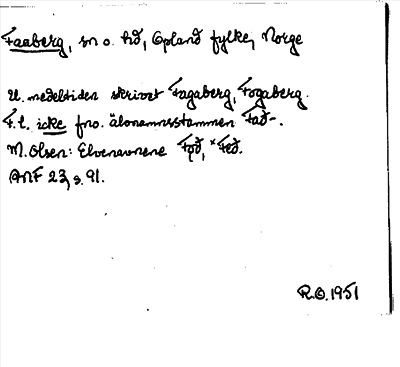 Faaberg, sn o. hd, Opland fylke, Norge
U. medeltiden skrivet Fagaberg, Fogaberg.
F.l. icke fno. älvnamnsstammen Fað-.
M. Olsen: Elvenavnene Fǫð, *Feð.
ANF 23, s. 91.
R.O. 1951